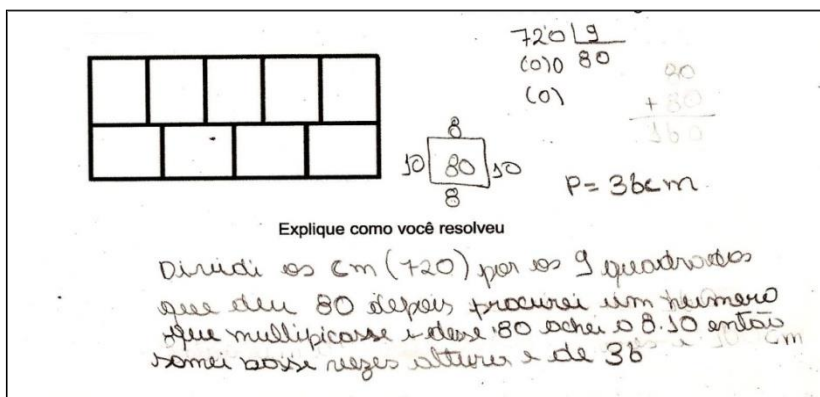 720 | 9
(0)0 80
(0)
90
+ 80
160
8
10 80 10
8
P= 36cm
Explique como você resolveu
Dividi os cm (720) por os 9 quadrados
que deu 80 depois procurei um número
que mullipicasse e desse 80 achei o 8.10 então
somei basse vezes altura e de 36
cm